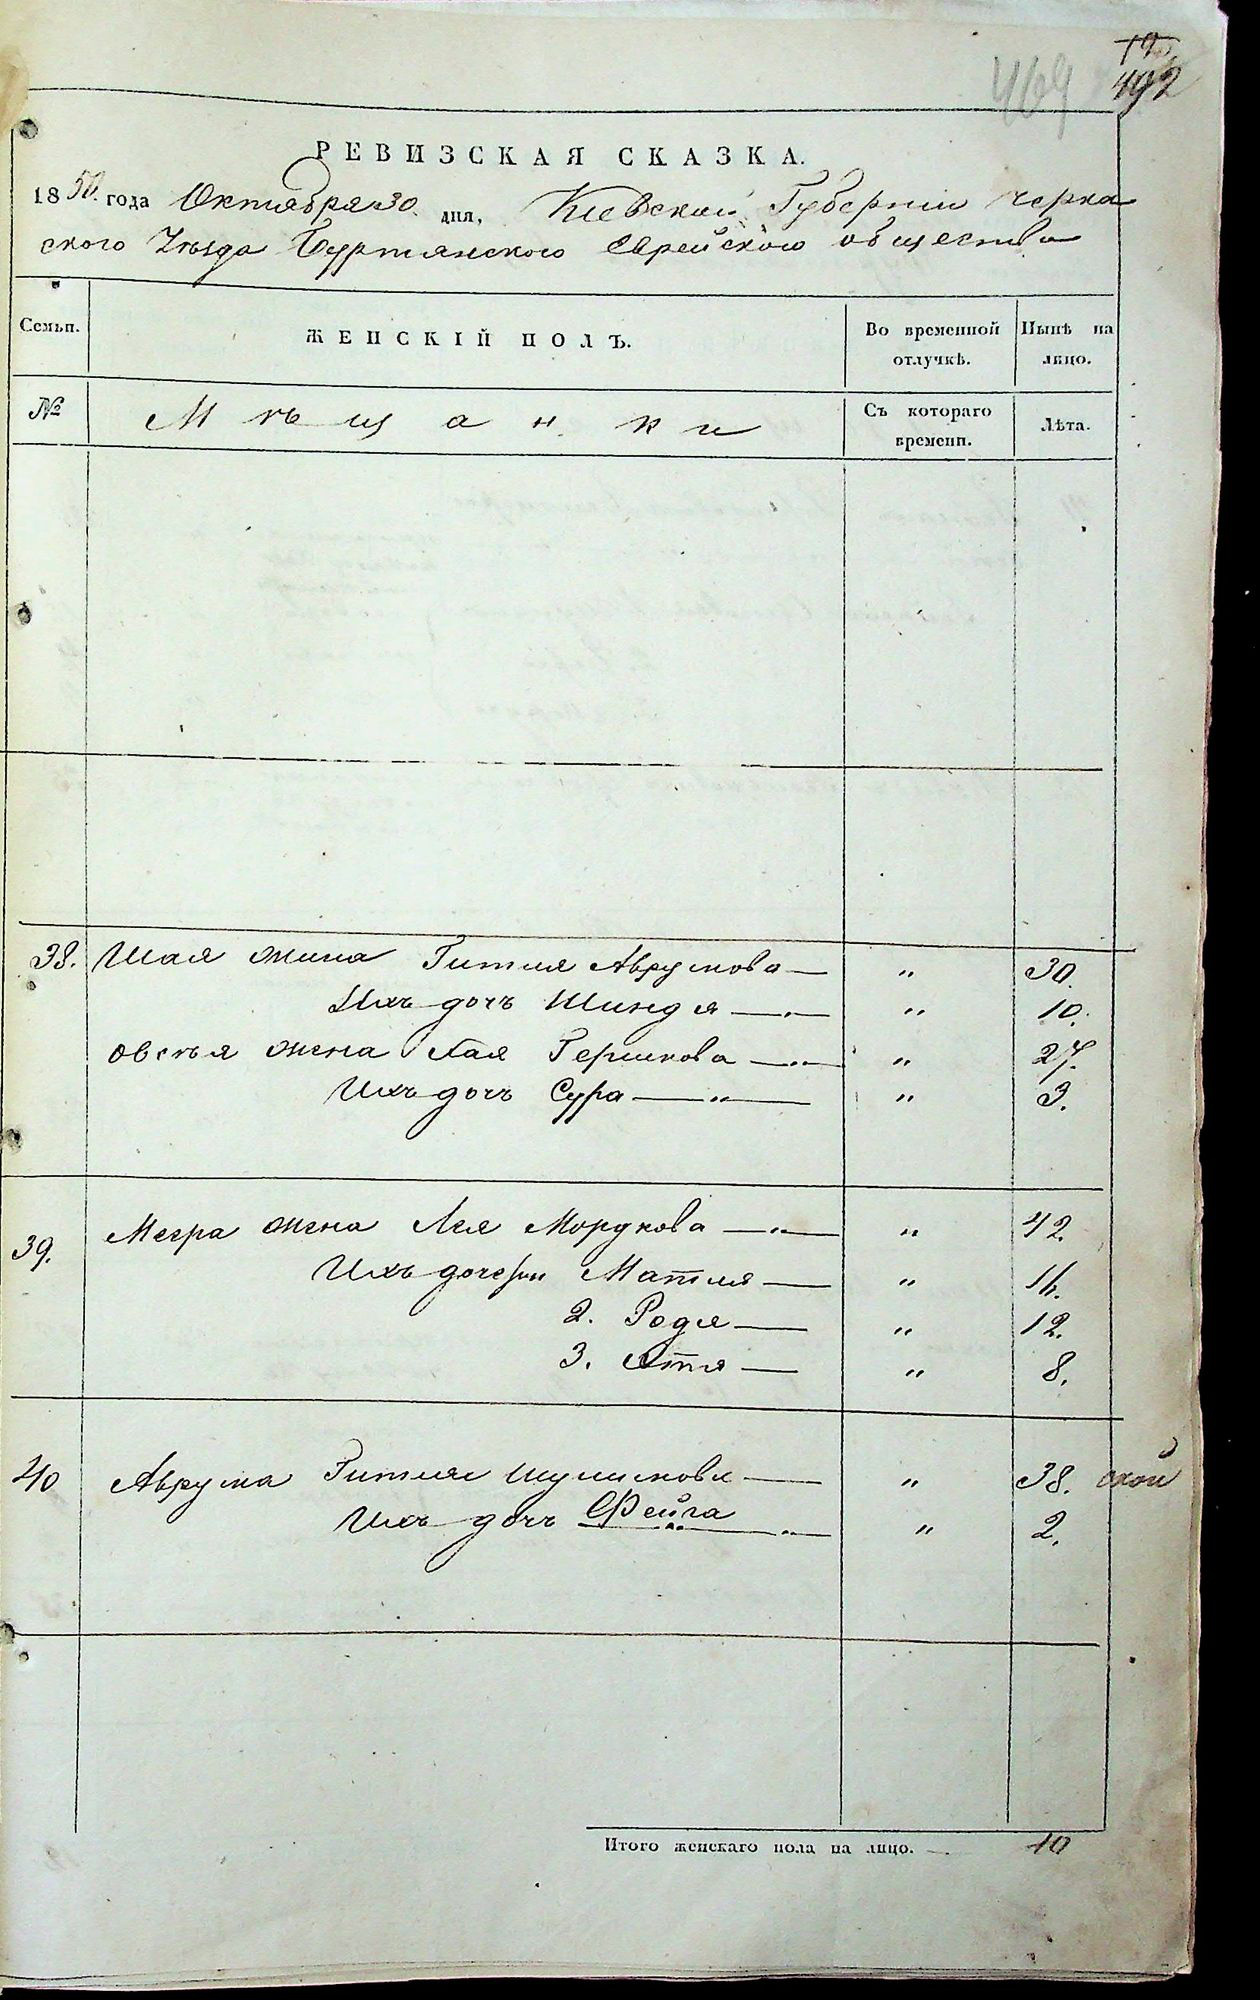 19
492
469
РЕВИЗСКАЯ СКАЗКА.
1850. года Октября 30. дня, Киевской Губернии Черка
ского Уѣзда Буртянского Еврейского общества
Семьи. ЖЕНСКІЙ ПОЛЪ. Во временной отлучкѣ. Нынѣ на лицо.
№ Мѣщанки Съ котораго времени. Лѣта.
38. Шая жина Гитля Аврумова — " 30.
Ихъ дочь Шиндя — " — " 10.
Овсѣя жена Хая Гершкова — " — " 27.
Ихъ дочь Сура — " — " 3.
39. Меера жена Лея Мордкова — " — " 42.
Ихъ дочери Матля — " 16.
2. Родя — " 12.
3. Этя — " 8.
40 Аврума Гитля Шулимова — " 38. ской
Ихъ дочь Фейга — " — " 2.
Итого женскаго пола на лицо. — 10